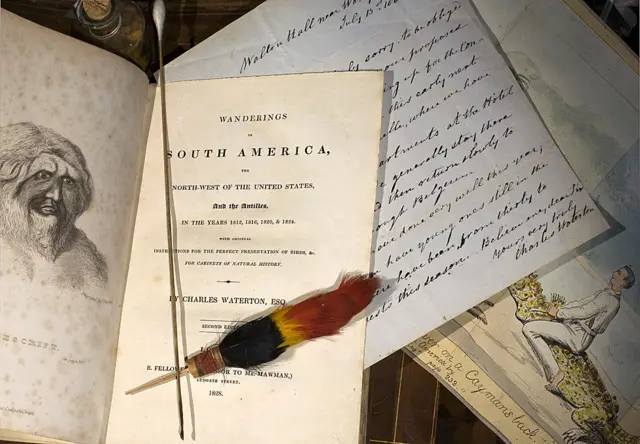 WANDERINGS
IN
SOUTH AMERICA,
THE
NORTH-WEST OF THE UNITED STATES,
And the Antilles,
IN THE YEARS 1812, 1816, 1820, & 1824.
WITH ORIGINAL
INSTRUCTIONS FOR THE PERFECT PRESERVATION OF BIRDS, &c.
FOR CABINETS OF NATURAL HISTORY.
BY CHARLES WATERTON, ESQ
SECOND
B. FELLOW
TO MR. MAWMAN,)
LUDGATE STREET.
1828.
Walton Hall near
July 15
sorry to be obliged
your proposes
up for the Con
this early next
where we have
apartments at the Hotel
generally stay there
then return slowly to
Belgium
have done very well this year,
have young ones still in the
have been from thirty to
nests this season. Believe me, dear Sir
yours very truly
Charles Waterton
on a Cayman's back